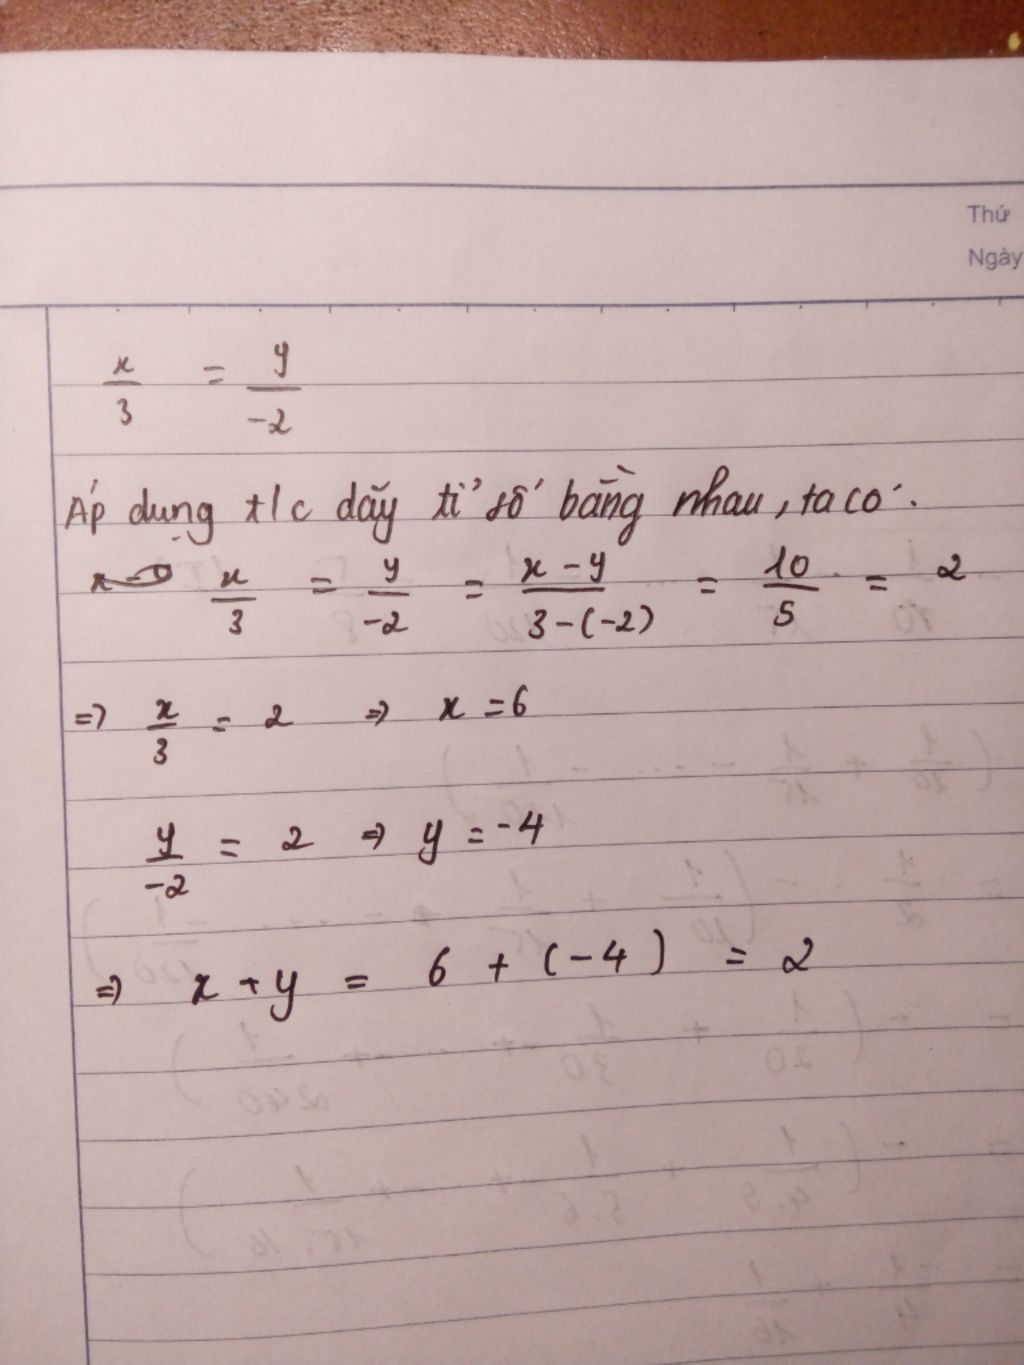 Thứ
Ngày
x/3 = y/-2
Áp dụng t/c dãy tỉ số bằng nhau, ta có:
x/3 = y/-2 = x - y/3-(-2) = 10/5 = 2
=> x/3 = 2 => x = 6
y/-2 = 2 => y = -4
=> x + y = 6 + (-4) = 2